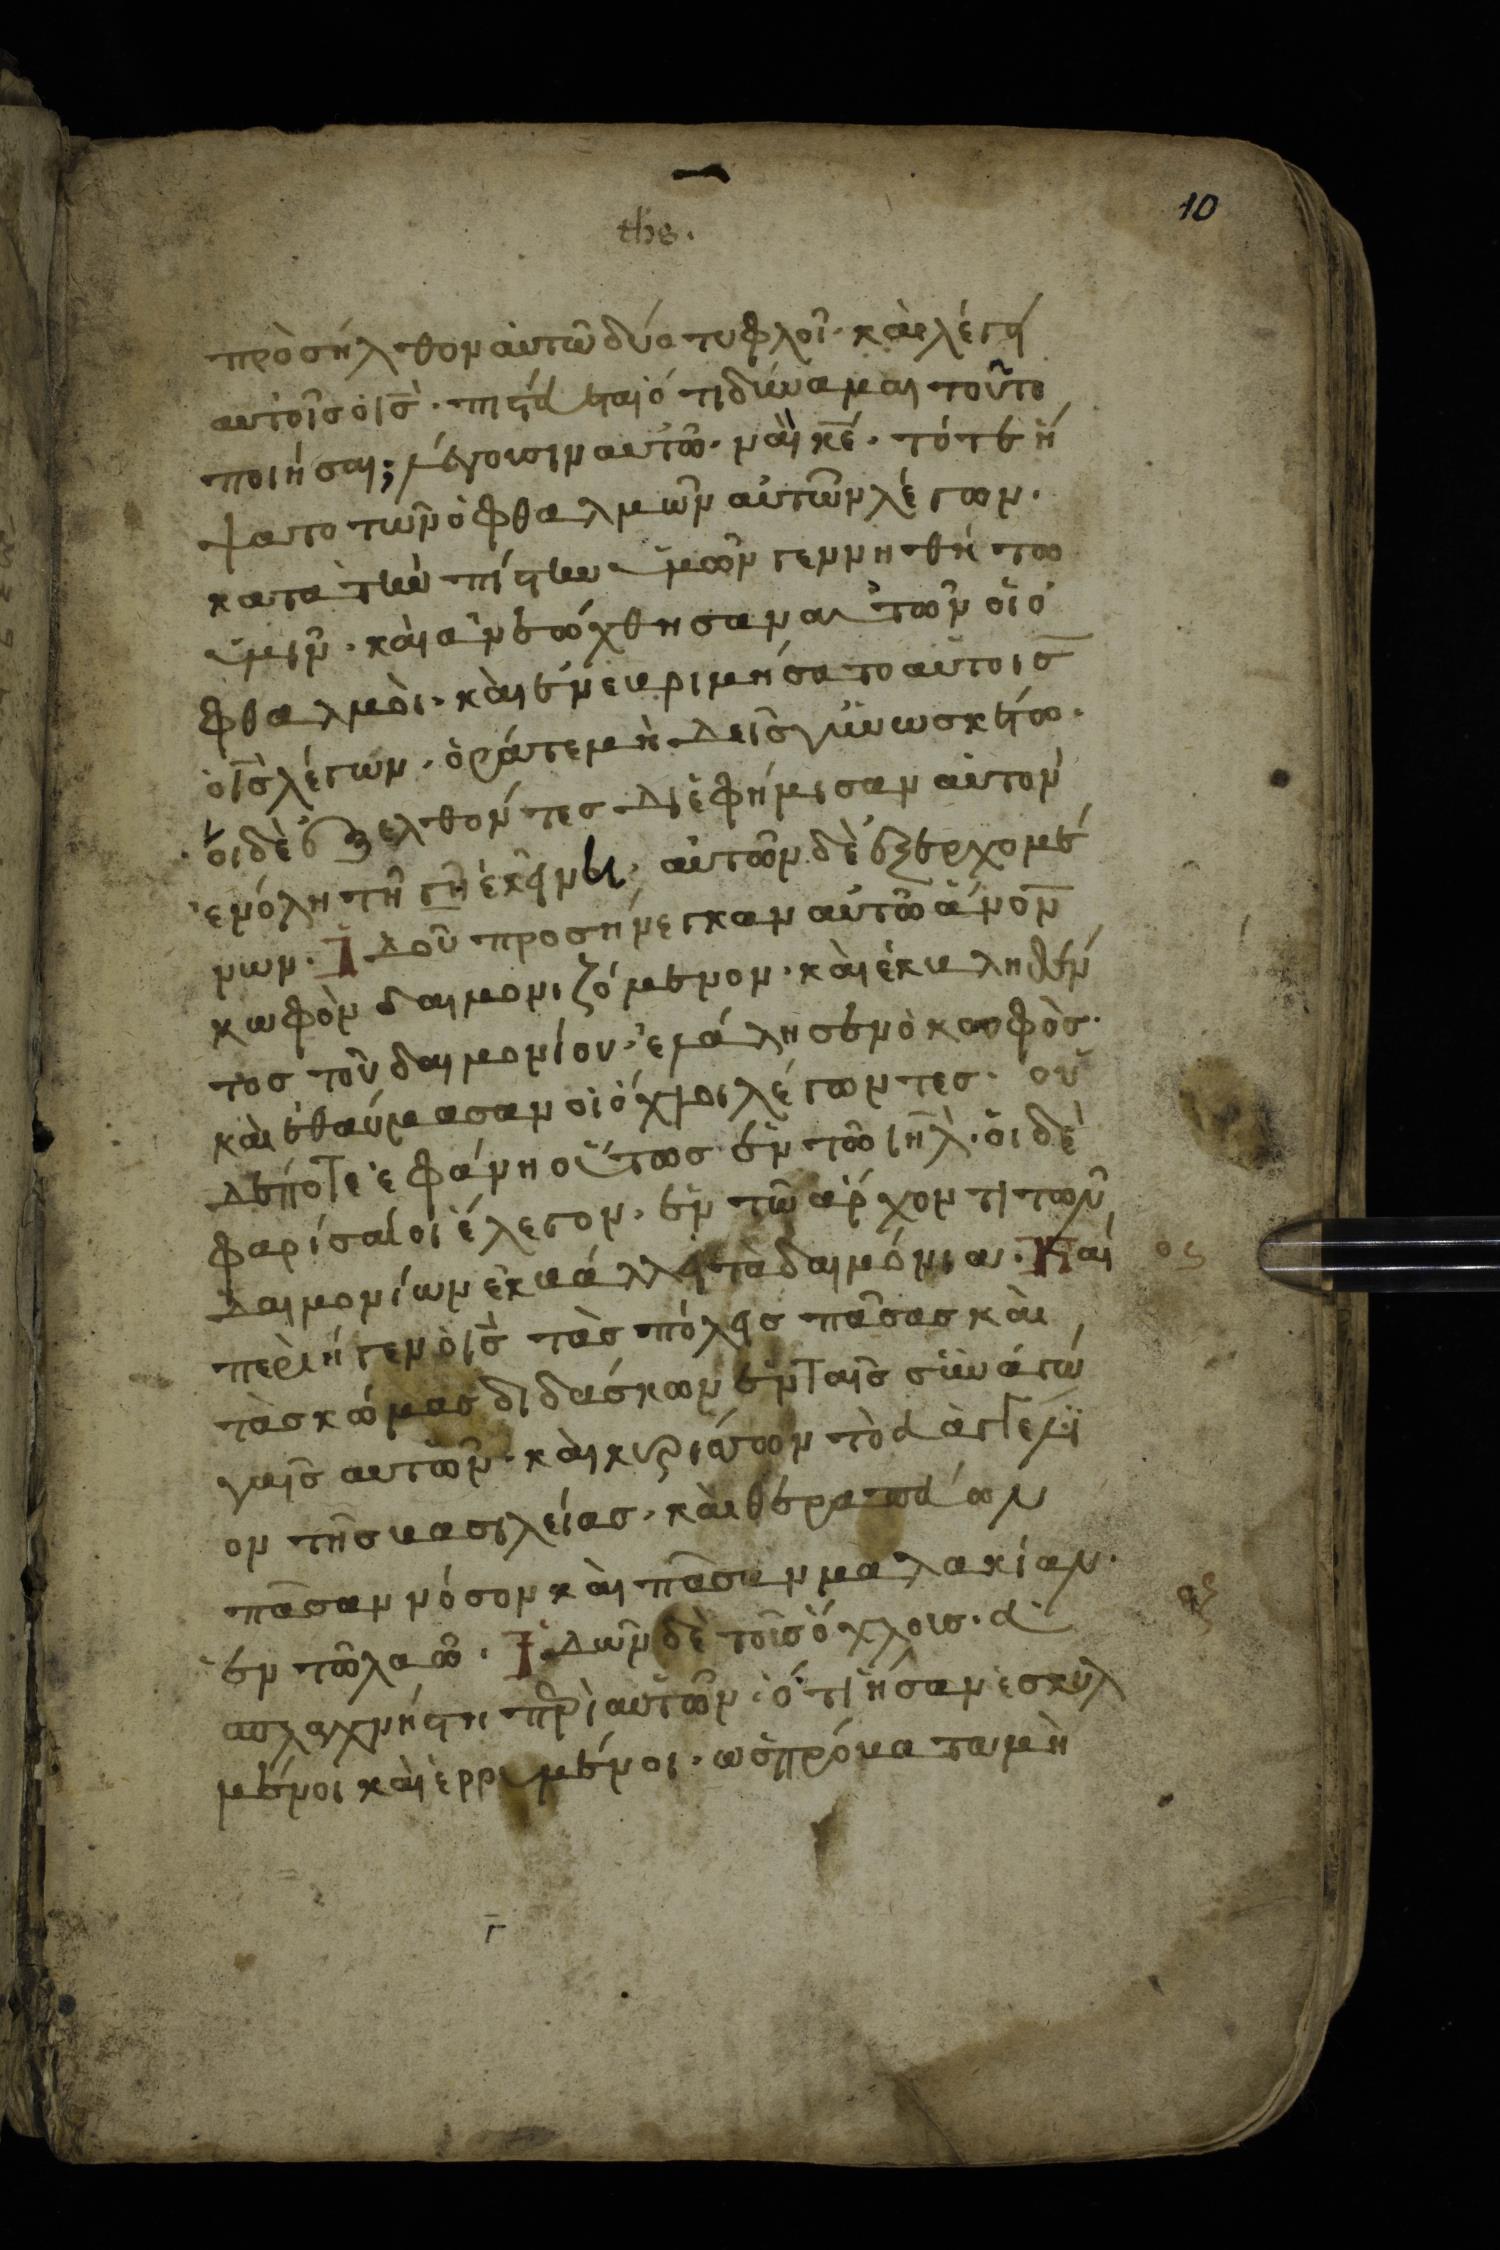 10
ths.
πρὸσήλθον αὐτῶ δύο τυφλοῖ· καὶ λέγει
αυτοῖς ὁ ις̅· πιστεύεται ό τι δύναμαι τοῦτο
ποιήσαι; λέγουσιν αυτῶ· ναὶ κε̅· τότε ἥ
ψατο τῶν ὀφθαλμῶν αὐτῶν λέγων·
κατα τὴν πίστιν ὑμῶν γεννηθή τω
ὑμῖν· καὶ ανεώχθησαν αυτῶν οἱ ὀ
φθαλμὸι· καὶ ἐνευριμήσατο αὐτοις
ὁ ις̅ λέγων· ὁράτε μὴ δεῖς γινωσκέτω·
ὁι δὲ ἐξελθόντες διἐφήμισαν αὐτον
ἐν όλη τῆ γῆ ἐκείνη· αὐτῶν δὲ ἐξερχομέ
νων· Ἰδοῦ προσηνεγκαν αὐτῶ ἄνον̅
κωφὸν δαιμονιζόμενον· καὶ ἐκυληθέν
τος τοῦ δαιμονίου· ἐλάλησεν ὁ κωφὸς·
καὶ ἐθαύμασαν οἱ ὄχλοι λέγωντες· οὐ
δέποτε ἐφάνη οὕτως ἐν τῶ ιηλ̅· ὁι δὲ
φαρίσαίοι ἔλεγον· ἐν τῶ αρχοντι τωῦ
δαιμονίων ἐκυάλλει τὰ δαιμόνια· Καί
περιήγεν ὁ ις̅ τὰς πόλεις πᾶσας καὶ
τὰς κώμας διδάσκων ἐν ταῖς συναγώ
γαῖς αυτῶν· καὶ κυρίττων τὸ εὐαγγέλϊ
ον τῆς υασιλείας· καὶ θεραπεύων
πᾶσαν νόσον καὶ πᾶσαν μαλακίαν·
ἐν τῶ λαῶ· Ἰδῶν δὲ τοῖς ὄχλοις· εὐ
σπλαχνήστη περὶ αὐτῶν· ὅτι ἦσαν ἐσκυλ
μένοι καὶ ἐρριμένοι· ωςπρόυατα μὴ
Γ̅